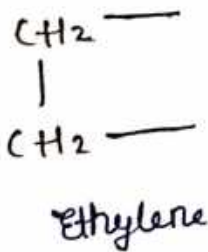 CH2 —
|
CH2 —
Ethylene